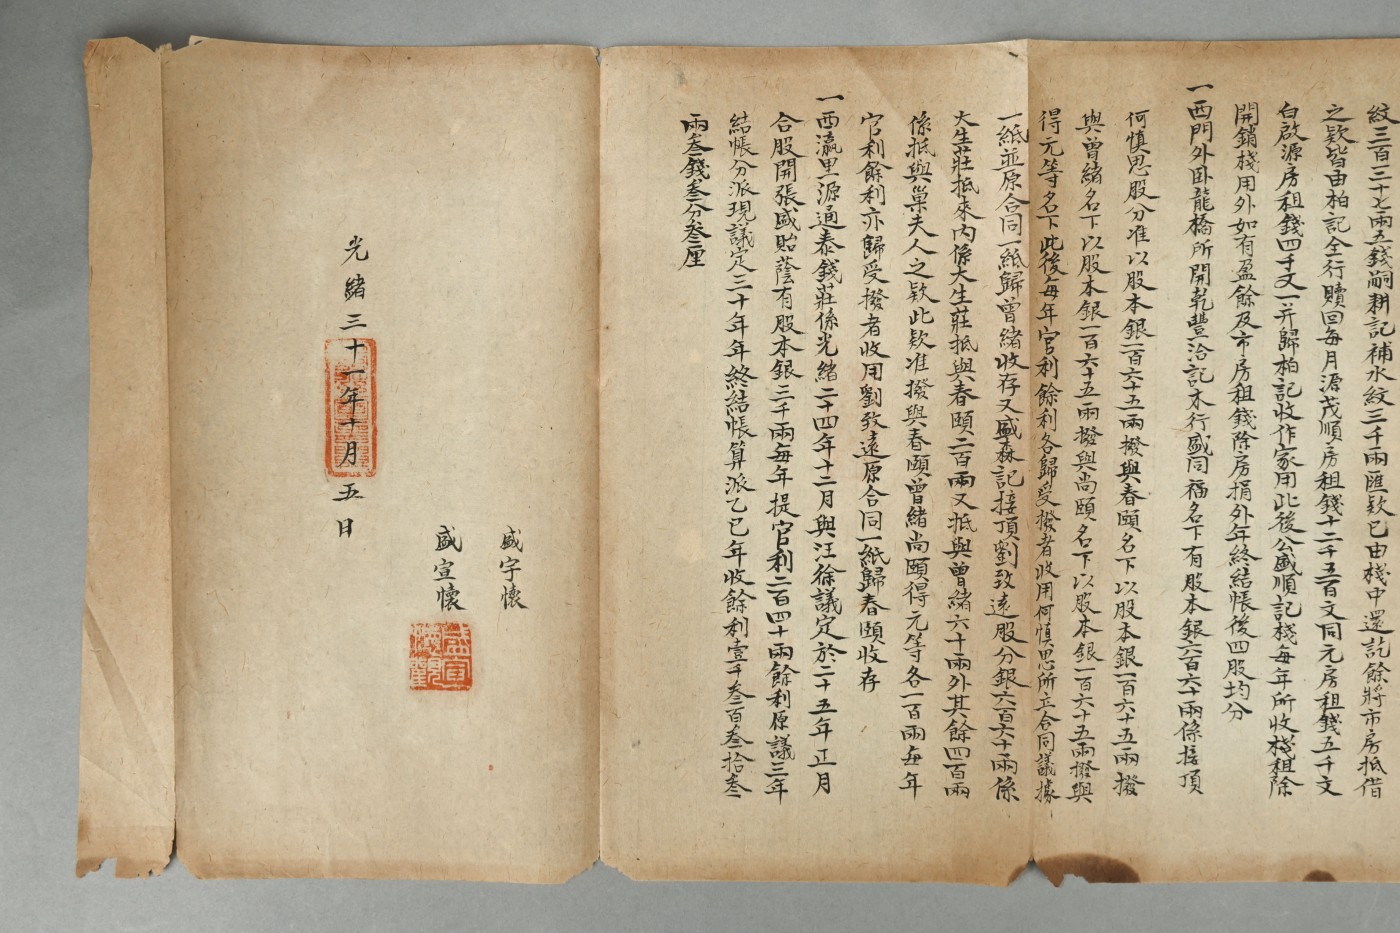 紋三百三十七兩五錢嗣耕記補水紋三千兩匯欵已由棧中還訖餘將市房抵借
之欵皆由柏記全行贖回每月源茂順房租錢十二千五百文同元房租錢五千文
白啟源房租錢四千文一并歸柏記收作家用此後公盛順記棧每年所收棧租除
開銷棧用外如有盈餘及市房租錢除房捐外年終結帳後四股均分
一西門外卧龍橋所開乾豐洽記木行盛同福名下有股本銀六百六十兩係接頂
何慎思股分准以股本銀一百六十五兩撥與春頤名下以股本銀一百六十五兩撥
與曾緒名下以股本銀一百六十五兩撥與尚頤名下以股本銀一百六十五兩撥與
得元等名下此後每年官利餘利各歸受撥者收用何慎思所立合同議據
一紙並原合同一紙歸曾緒收存又盛森記接頂劉致遠股分銀六百六十兩係
大生莊抵來內係大生莊抵與春頤二百兩又抵與曾緒六十兩外其餘四百兩
係抵與巢夫人之欵此欵准撥與春頤曾緒尚頤得元等各一百兩每年
官利餘利亦歸受撥者收用劉致遠原合同一紙歸春頤收存
一西瀛里源通泰錢莊係光緒二十四年十二月與汪徐議定於二十五年正月
合股開張盛貽蔭有股本銀三千兩每年提官利二百四十兩餘利原議三年
結帳分派現議定三十年年終結帳算派乙巳年收餘利壹千叁百叁拾叁
兩叁錢叁分叁厘
盛宇懷
盛宣懷
光緒三十一年十月五日